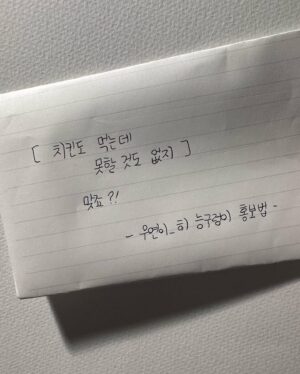 [ 치킨도 먹는데
못할 것도 없지 ]
맞죠?!
- 우연이_히 능구렁이 홍보법 -